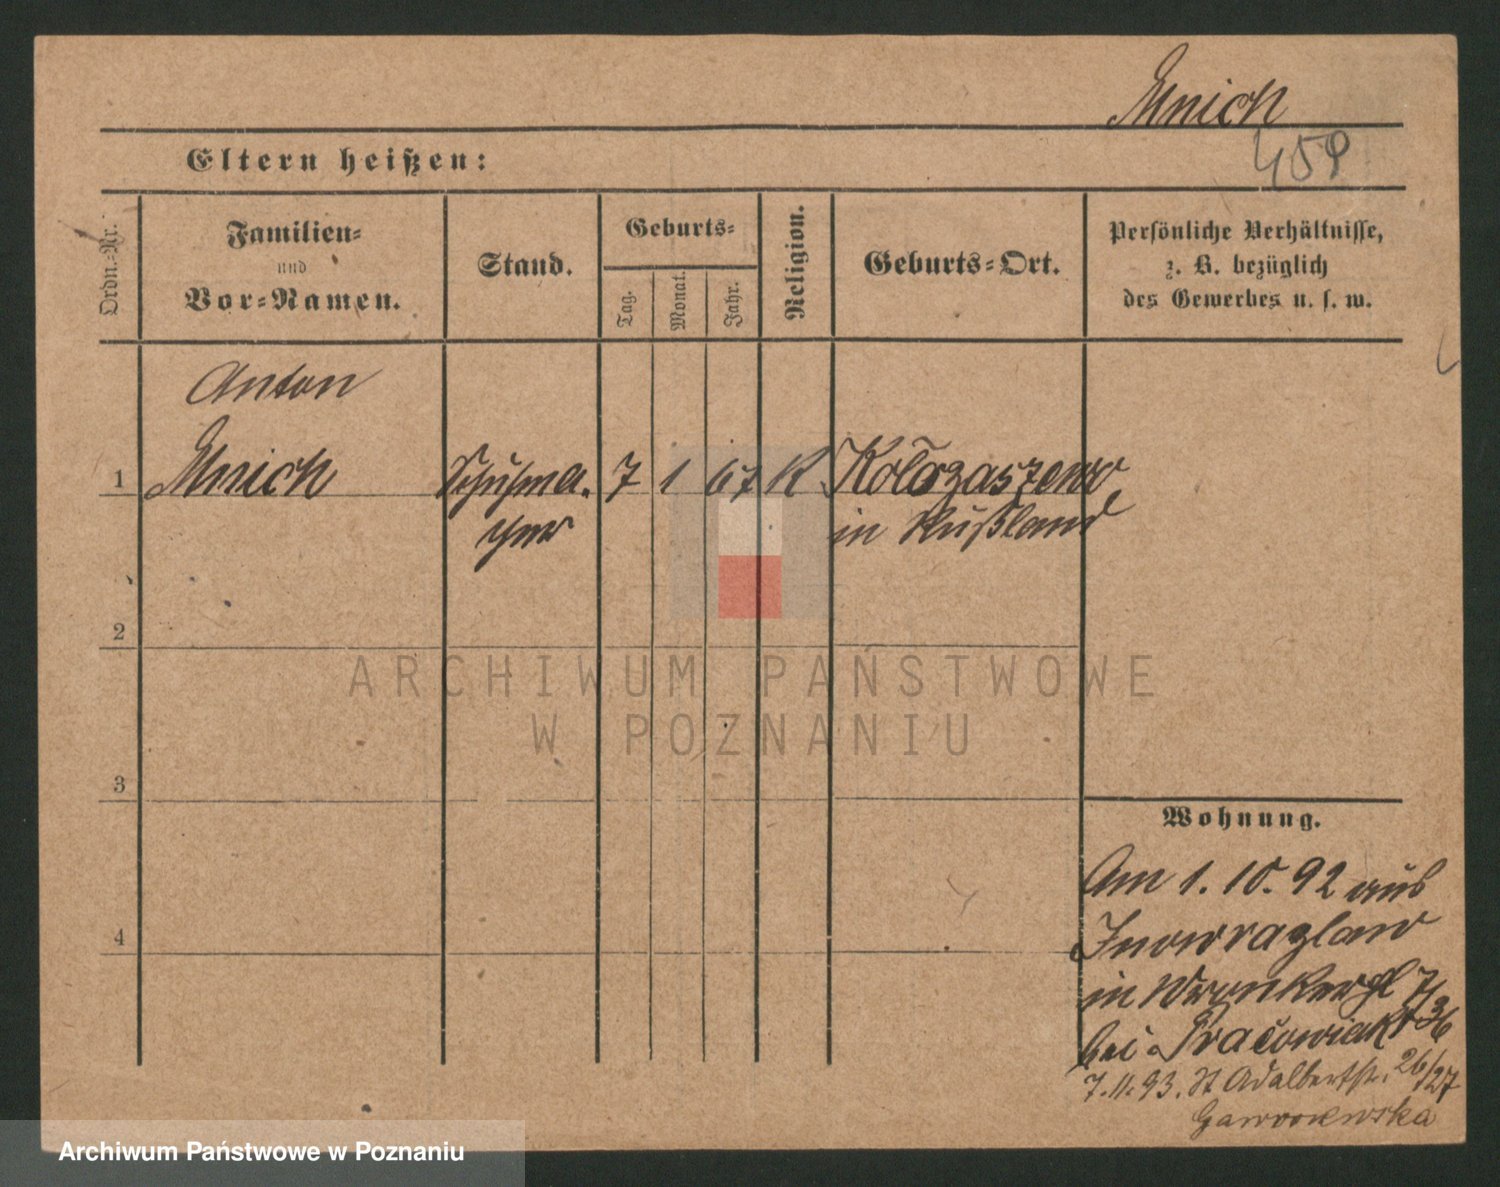 Mnich
458
Eltern heißen:
Ordn.-Nr.
Familien-
und
Vor-Namen.
Stand.
Geburts-
Tag.
Monat.
Jahr.
Religion.
Geburts-Ort.
Persönliche Verhältnisse,
z. B. bezüglich
des Gewerbes u. s. w.
Anton
1 Mnich Schuhma- 7 1 67 K
cher in Rußland
2
ARCHIWUM PAŃSTWOWE
W POZNANIU
3
Wohnung.
4
Am 1. 10. 92 aus
Inowrazlaw
in Wronkerpl
bei
7.11.93. St Adalbertstr. 26/27
Archiwum Państwowe w Poznaniu